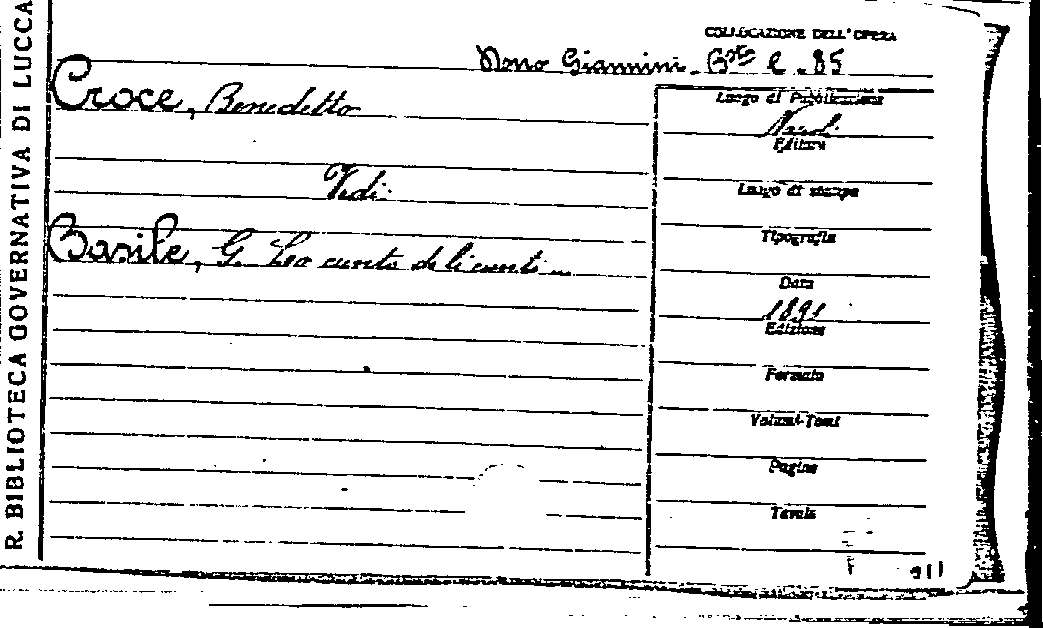 R. BIBLIOTECA GOVERNATIVA DI LUCCA
COLLOCAZIONE DELL'OPERA
Giannini. C. 85
Croce, Benedetto
Vedi:
Basile, G. Lo cunto de li cunti...
Luogo di Pubblicazione
Napoli
Editore
Luogo di stampa
Tipografia
Data
1891
Edizione
Formato
Volumi-Tomi
Pagine
Tavole